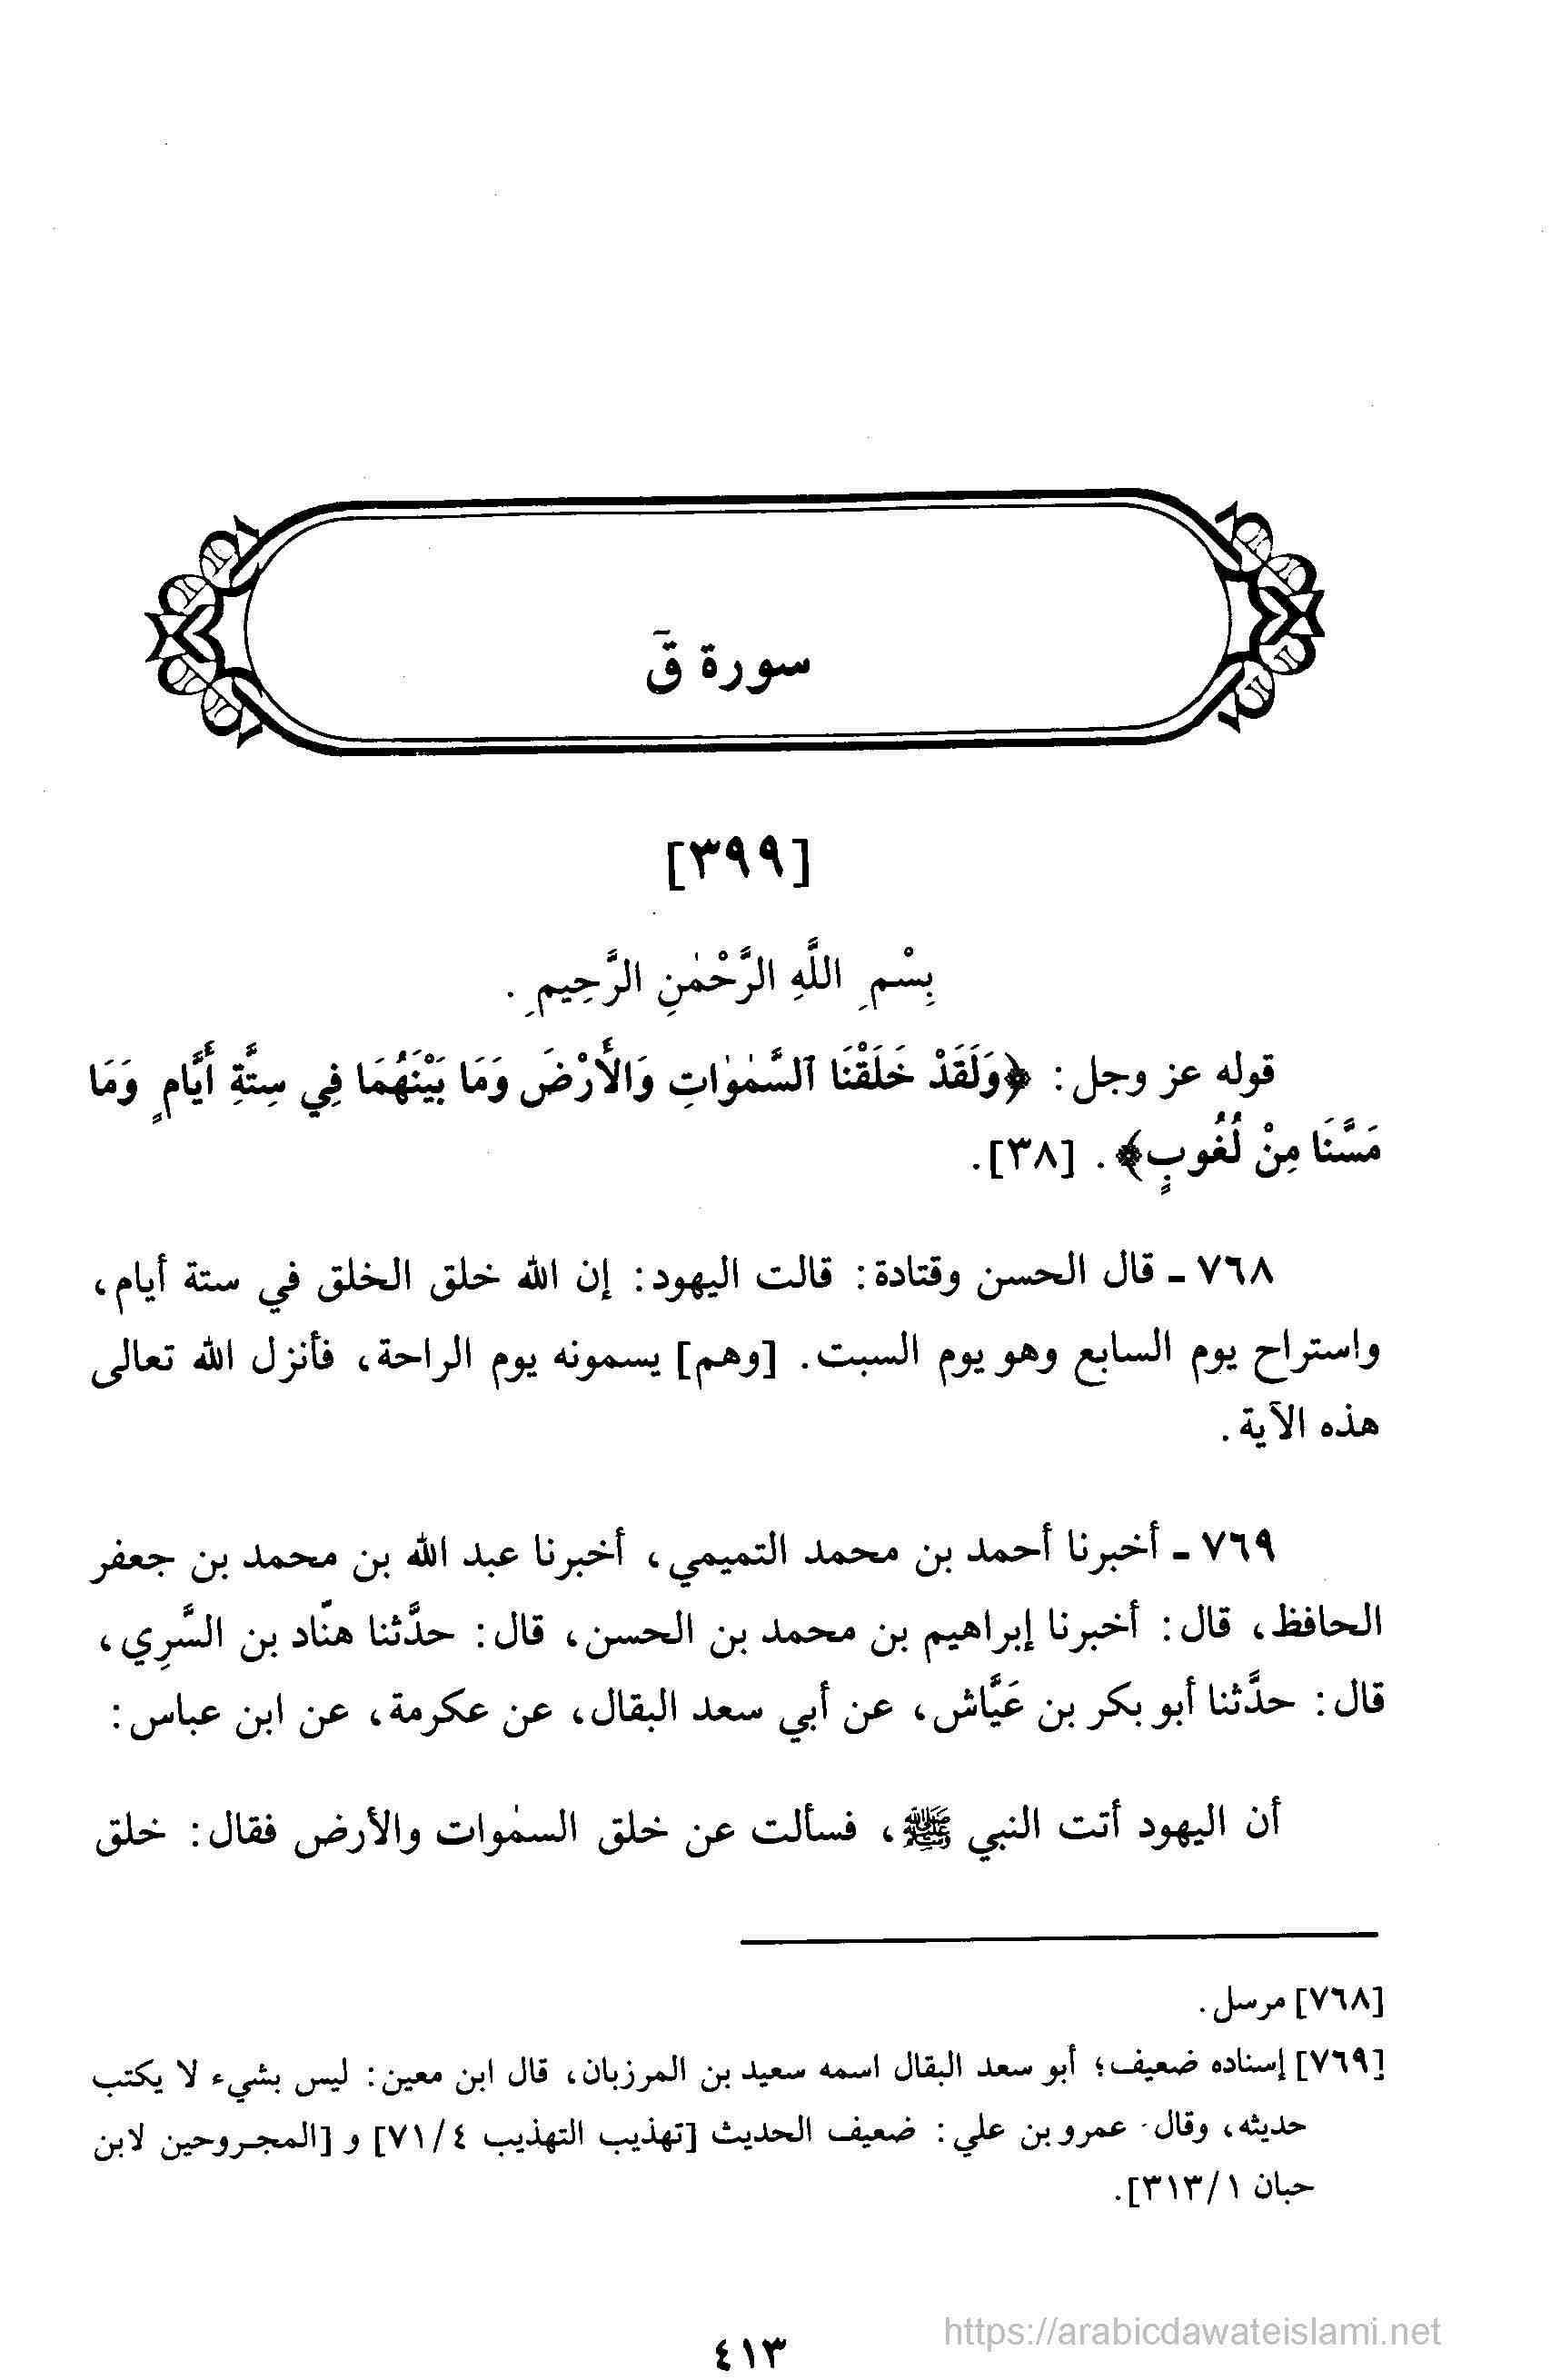 سورة قۤ
[٣٩٩]
بِسْمِ اللَّهِ الرَّحْمٰنِ الرَّحِيمِ.
قوله عز وجل: ﴿وَلَقَدْ خَلَقْنَا ٱلسَّمٰوٰاتِ وَالأَرْضَ وَمَا بَيْنَهُمَا فِي سِتَّةِ أَيَّامٍ وَمَا
مَسَّنَا مِنْ لُغُوبٍ﴾. [٣٨].
٧٦٨ ـ قال الحسن وقتادة: قالت اليهود: إن الله خلق الخلق في ستة أيام،
واستراح يوم السابع وهو يوم السبت. [وهم] يسمونه يوم الراحة، فأنزل الله تعالى
هذه الآية.
٧٦٩ ـ أخبرنا أحمد بن محمد التميمي، أخبرنا عبد الله بن محمد بن جعفر
الحافظ، قال: أخبرنا إبراهيم بن محمد بن الحسن، قال: حدَّثنا هنّاد بن السَّرِي،
قال: حدَّثنا أبو بكر بن عَيَّاش، عن أبي سعد البقال، عن عكرمة، عن ابن عباس:
أن اليهود أتت النبي ﷺ، فسألت عن خلق السمٰوات والأرض فقال: خلق
[٧٦٨] مرسل.
[٧٦٩] إسناده ضعيف؛ أبو سعد البقال اسمه سعيد بن المرزبان، قال ابن معين: ليس بشيء لا يكتب
حديثه، وقال عمرو بن علي: ضعيف الحديث [تهذيب التهذيب ٧١/٤] و [المجروحين لابن
حبان ٣١٣/١].
٤١٣
https://arabicdawateislami.net